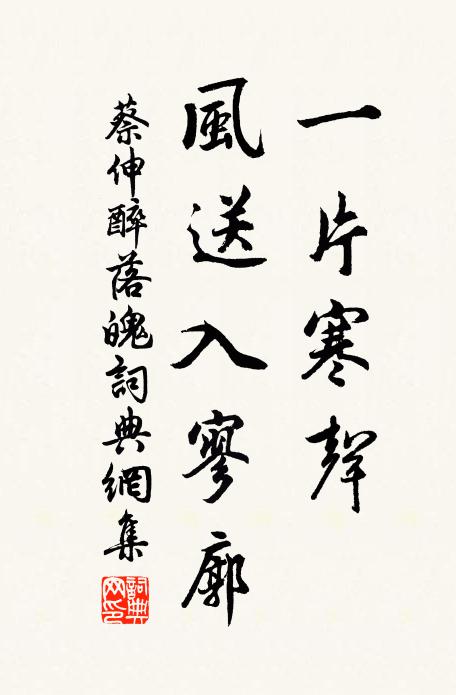 一片寒聲
風送入寥廓
蔡伸醉落魄詞典網集
詞典網印